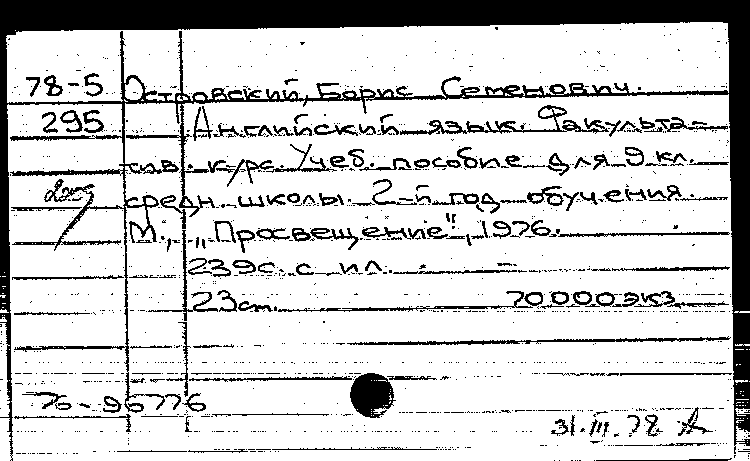 78-5 Островский, Борис Семенович.
295 Английский язык. Факульта-
тив. курс. Учеб. пособие для 9 кл.
средн. школы. 2-й год обучения.
М., „Просвещение", 1976.
239с. с ил. -
23см. 70000экз.
76-96776
31.III.78